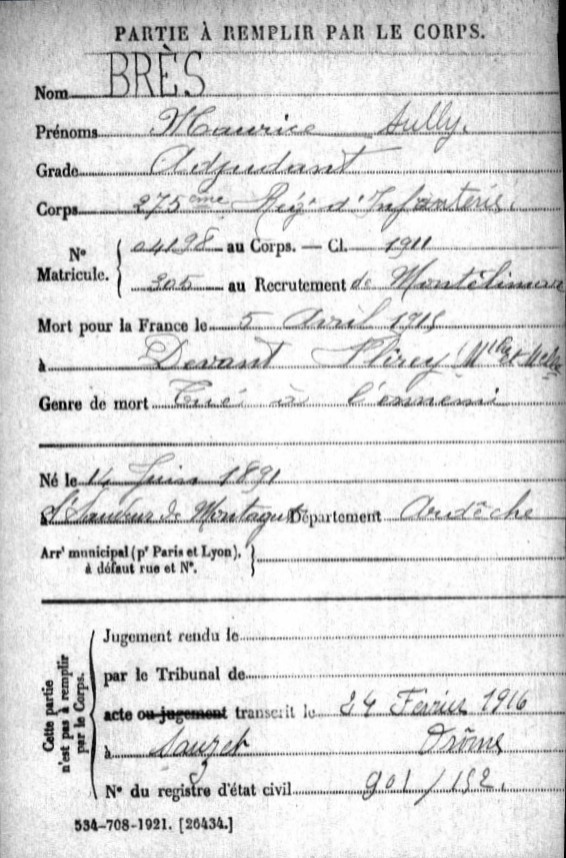 PARTIE À REMPLIR PAR LE CORPS.
Nom BRÈS
Prénoms Maurice Sully.
Grade Adjudant
Corps 275ème Régt d'Infanterie.
N° Matricule. { 04198 au Corps. — Cl. 1911
305 au Recrutement de Montélimar
Mort pour la France le 5 Avril 1915
à Devant Flirey (Mthe et Mlle)
Genre de mort Tué à l'ennemi
Né le 14 Juin 1891
à St Sauveur de Montagut Département Ardèche
Arrt municipal (pr Paris et Lyon),
à défaut rue et N°.
Cette partie n'est pas à remplir par le Corps.
Jugement rendu le
par le Tribunal de
acte ou jugement transcrit le 24 Février 1916
à Sauzet Drôme
N° du registre d'état civil 901/152.
534-708-1921. [26434.]